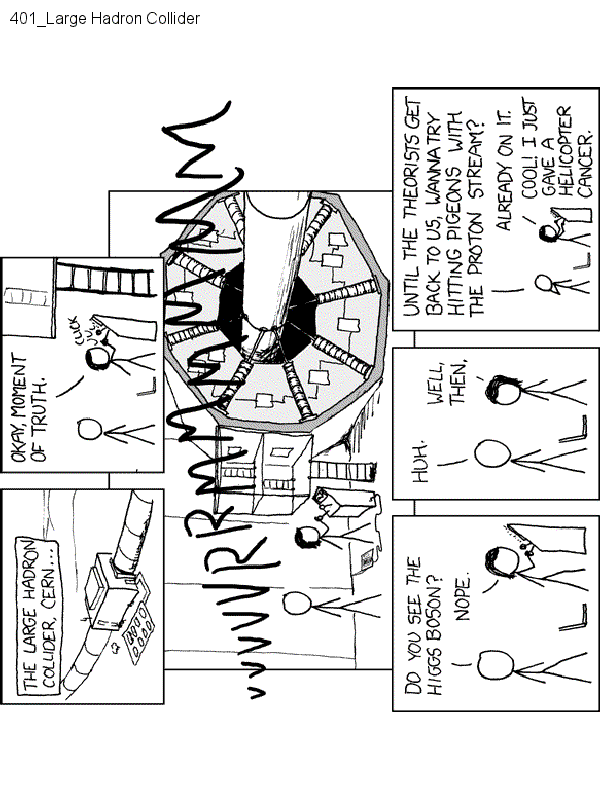 401_Large Hadron Collider
THE LARGE HADRON
COLLIDER, CERN...
OKAY, MOMENT
OF TRUTH.
CLICK
VVVVVRRMMMMMMM
DO YOU SEE THE
HIGGS BOSON?
NOPE.
HUH.
WELL,
THEN.
UNTIL THE THEORISTS GET
BACK TO US, WANNA TRY
HITTING PIGEONS WITH
THE PROTON STREAM?
ALREADY ON IT.
COOL! I JUST
GAVE A
HELICOPTER
CANCER.